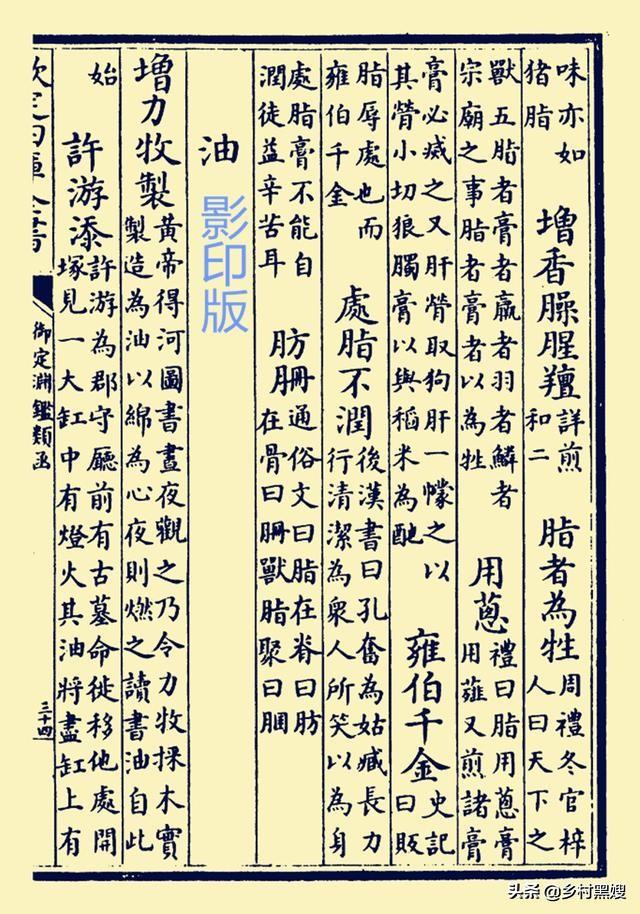 味亦如
猪脂
增香臊腥羶
詳煎
和二
脂者為牲
周禮冬官梓
人曰天下之
獸五脂者膏者臝者羽者鱗者
宗廟之事脂者膏者以為牲
用蔥
禮曰脂用蔥膏
用薤又煎諸膏
膏必滅之又肝膋取狗肝一幪之以
其膋小切狼臅膏以與稻米為酏
雍伯千金
史記
曰販
脂辱處也而
雍伯千金
處脂不潤
後漢書曰孔奮為姑臧長力
行清潔為衆人所笑以為身
處脂膏不能自
潤徒益辛苦耳
肪𦙱
通俗文曰脂在脊曰肪
在骨曰𦙱獸脂聚曰䐃
油
影印版
增力牧製
黃帝得河圖書晝夜觀之乃令力牧採木實
製造為油以綿為心夜則燃之讀書油自此
始
許游添
許游為郡守廳前有古墓命徙移他處開
塚見一大缸中有燈火其油將盡缸上有
欽定四庫全書
御定淵鑑類函
三十四
头条 @乡村黑嫂